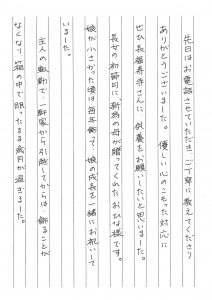 先日はお電話させていただき、ご丁寧に教えてくださり
ありがとうございました。優しい心のこもった対応に
ぜひ長福寿寺さんに供養をお願いしたいと思いました。
長女の初節句に新潟の母が贈ってくれたおひな様です。
娘が小さかった頃は毎年飾って、娘の成長を一緒にお祝いして
いました。
主人の転勤で一軒家から引越してからは飾ることが
なくなり箱の中で眠ったまま歳月が過ぎました。